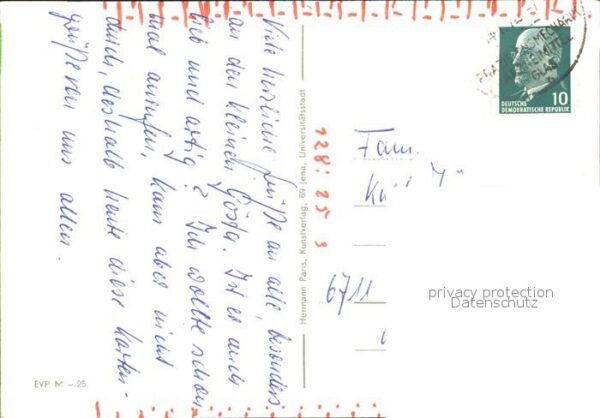 Viele herzliche Grüße an alle, besonders
an den kleinen Gösta. Ist er auch
lieb und artig? Ich wollte schon
mal anrufen, kam aber nicht
durch, deshalb heute diese Karten-
grüße von uns allen.
Hermann Paris, Kunstverlag, 69 Jena, Universitätsstadt
EVP M –.25
128 25 3
Fam.
6711
DEUTSCHE
DEMOKRATISCHE REPUBLIK
10
privacy protection
Datenschutz